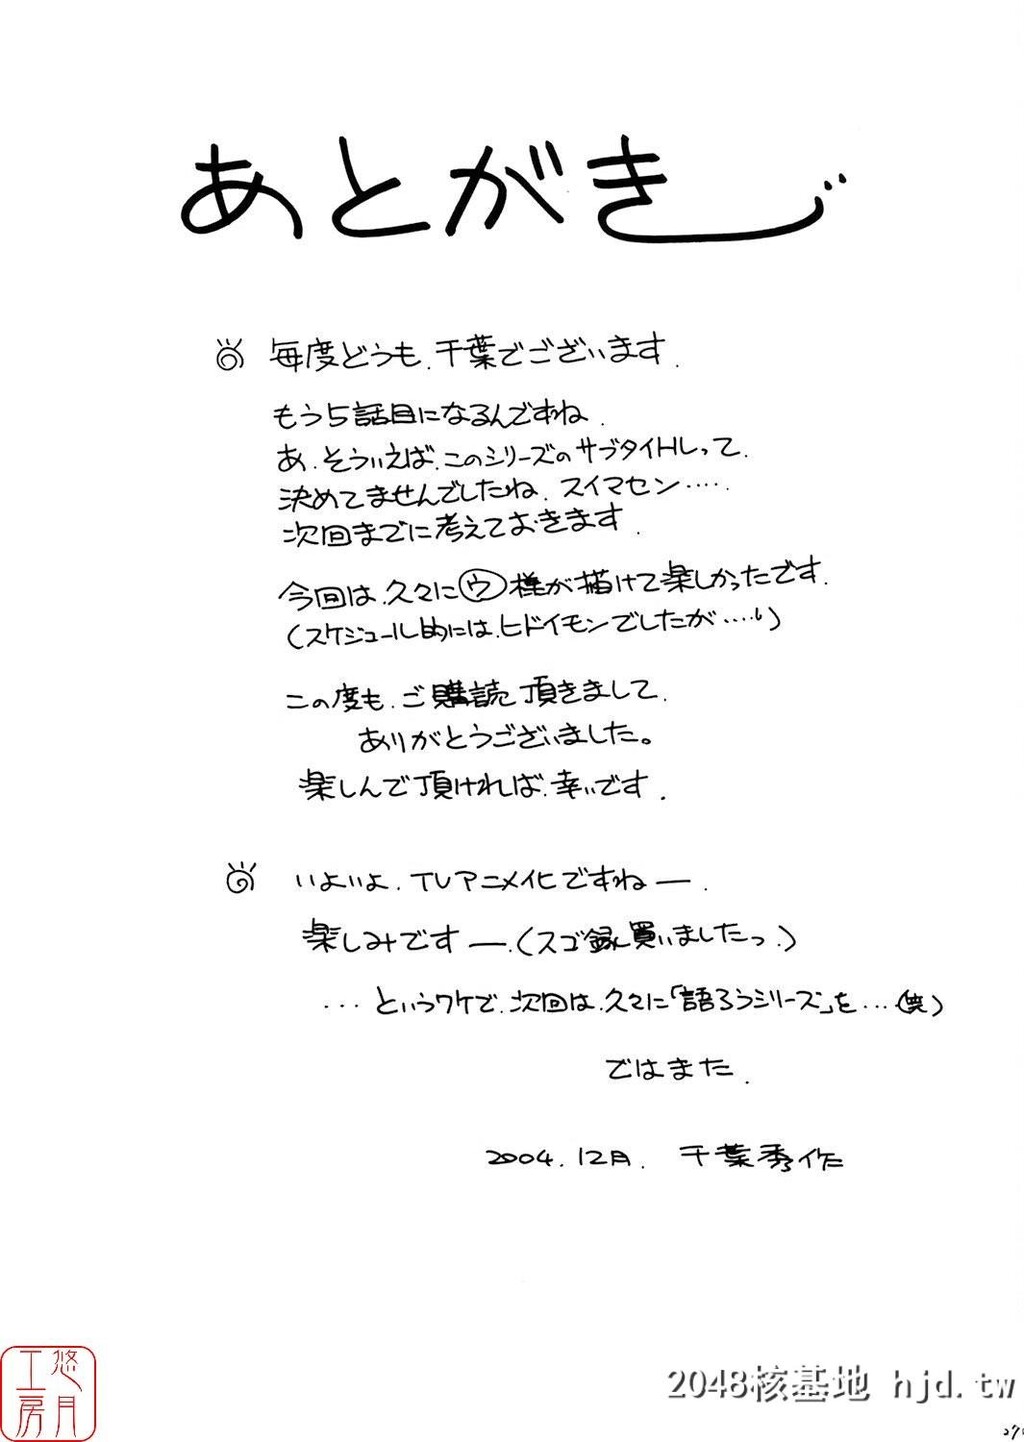 あとがき
毎度どうも、千葉でございます.
もう5話目になるんですね.
あ、そういえば、このシリーズのサブタイトルって、
決めてませんでしたね、スイマセン・・・・.
次回までに考えておきます.
今回は、久々に㋒様が描けて楽しかったです.
(スケジュール的には、ヒドイモンでしたが・・・・)
この度も、ご購読頂きまして、
ありがとうございました。
楽しんで頂ければ、幸いです.
いよいよ、TVアニメ化ですねー.
楽しみですー.(スゴ録買いましたっ!)
・・・というワケで、次回は、久々に「語ろうシリーズ」を・・・(笑)
ではまた.
2004.12月. 千葉秀作
悠月工房
2048核基地 hjd.tw